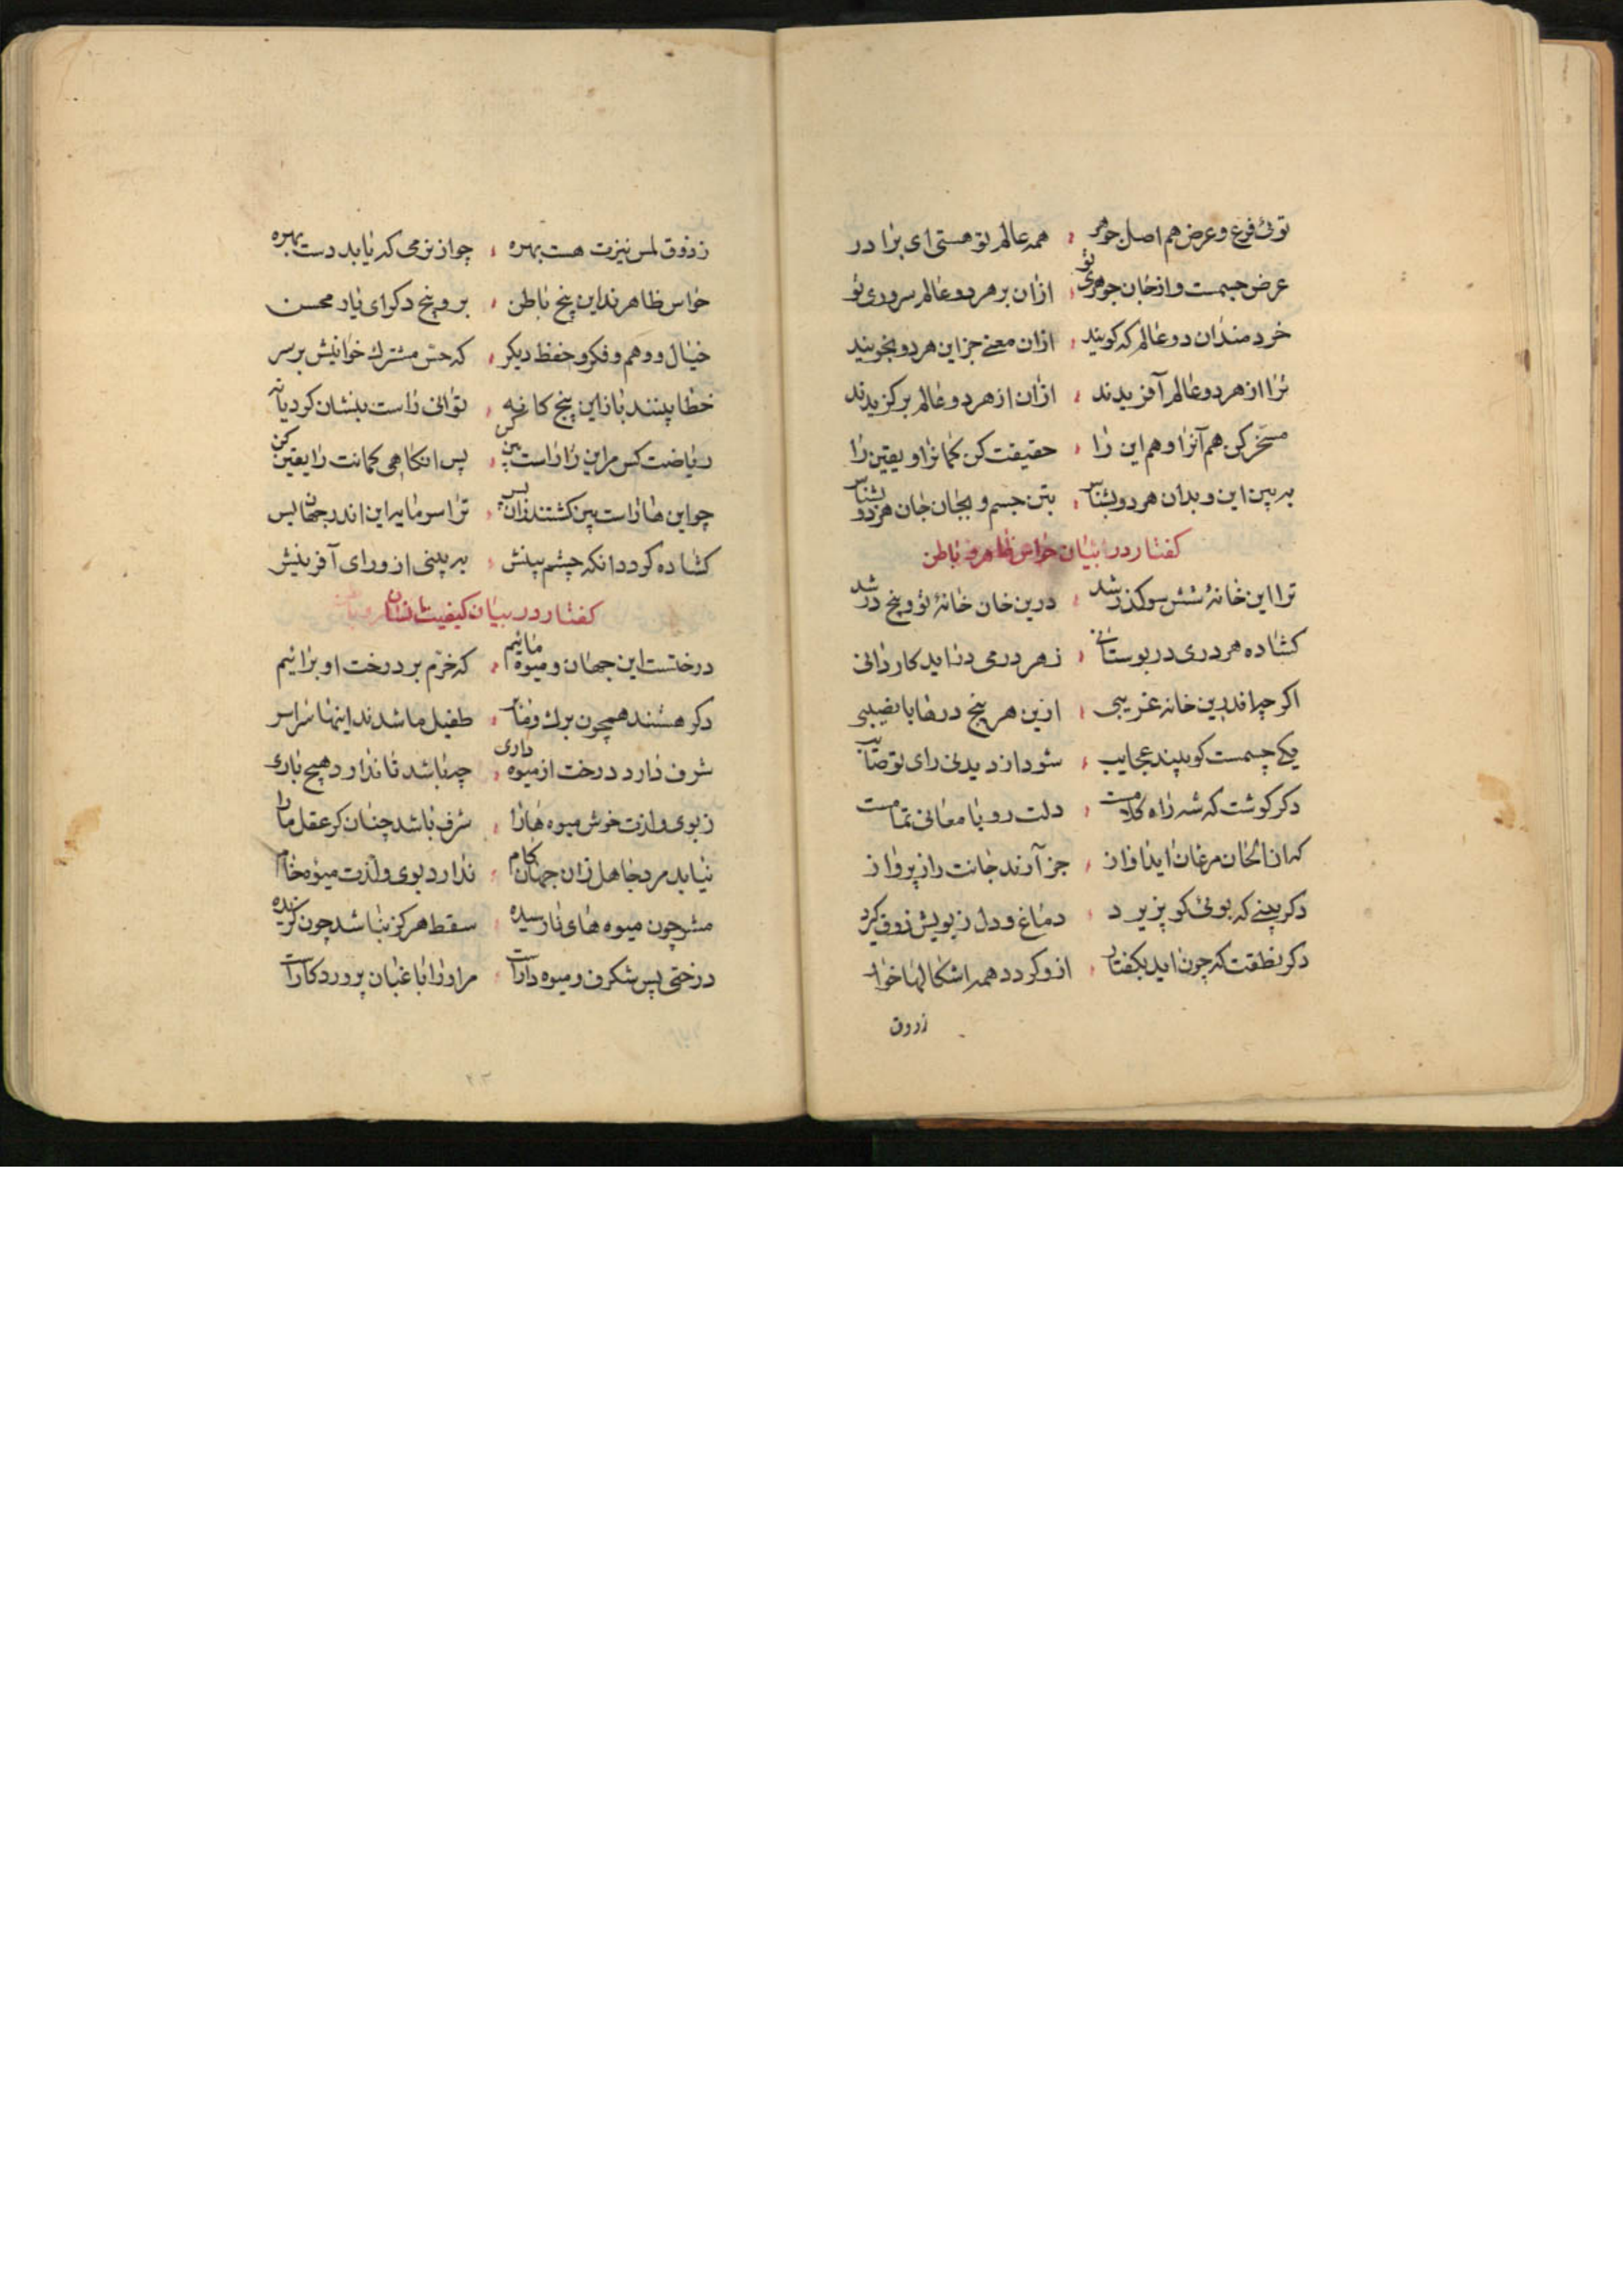 توئ فرع و عرض هم اصل جوهر ، همه عالم تو هستی ای برادر
عرض جسمست و از جان جوهری تو ، ازان بر هر دو عالم سروری تو
خردمندان دو عالم که کویند ، ازان معنے جز این هر دو نجویند
ترا از هر دو عالم آفریدند ، ازان از هر دو عالم برکزیدند
مسخّر کن هم آنرا و هم این را ، حقیقت کن کمانرا و یقین را
به بین این و بدان هر دو بشناس ، بتن جسم و بجان جان هر دو بشناس
کفتار در بیان حواس ظاهر و باطن
ترا این خانهٔ شش سو کذر شد ، درین خان خانهٔ تو و پنج در شد
کشاده هر دری در بوستانی ، ز هر در می در اید کاردانی
اکر چه اندرین خانه غریبی ، ازین هر پنج درها با نصیبی
یکے چشمست کو بیند عجایب ، شود از دیدنی رای تو صائب
دکر کوشت که شه راه کلامست ، دلت رو با معانی تمامست
الحان مرغان اواز ، جانت را ز پرواز
دکر بینے که بوئ کو پزیرد ، دماغ و دل ز بویش ذوق کیرد
دکر نطقت که چون اید بکفتار ، ازو کردد همه اشکالها خوار
زذوق
ز ذوق لمس نیزت هست بهره ، چو از نرمی که یابد دست بهره
حواس ظاهرند این پنج باطن ، برو پنج دکر ای یار محسن
خیال و وهم و فکر و حفظ دیکر ، که حسّ مشترک خوانیش بر سر
خطا بینند باز این پنج کانه ، توانی راست بینشان کرد یا نه
ریاضت کس مر این را راست بین کن ، پس انکاهی کمانت را یقین کن
چو این ها راست بین کشتند زان پس ، ترا سرمایه این اندر جهان بس
کشاده کردد انکه چشم بینش ، به بینی از ورای آفرینش
کفتار در بیان کیفیت انسان
درختست این جهان و میوه مائیم ، که خرّم بر درخت او برائیم
دکر هستند همچون برک و خار ، طفیل ما شدند اینها سراسر
شرف دارد درخت از میوه داری ، چه باشد تا ندارد هیچ باری
ز بوی و لذت خوش میوه هارا ، شرف باشد چنان کز عقل مارا
نیابد مرد جاهل زان جهان کام ، ندارد بوی و لذت میوه خام
مشو چون میوه های نارسیده ، سقط هرکز نباشد چون کزیده
درختی بس شکرف و میوه دارست ، مر اورا باغبان پروردکارست
۲۳